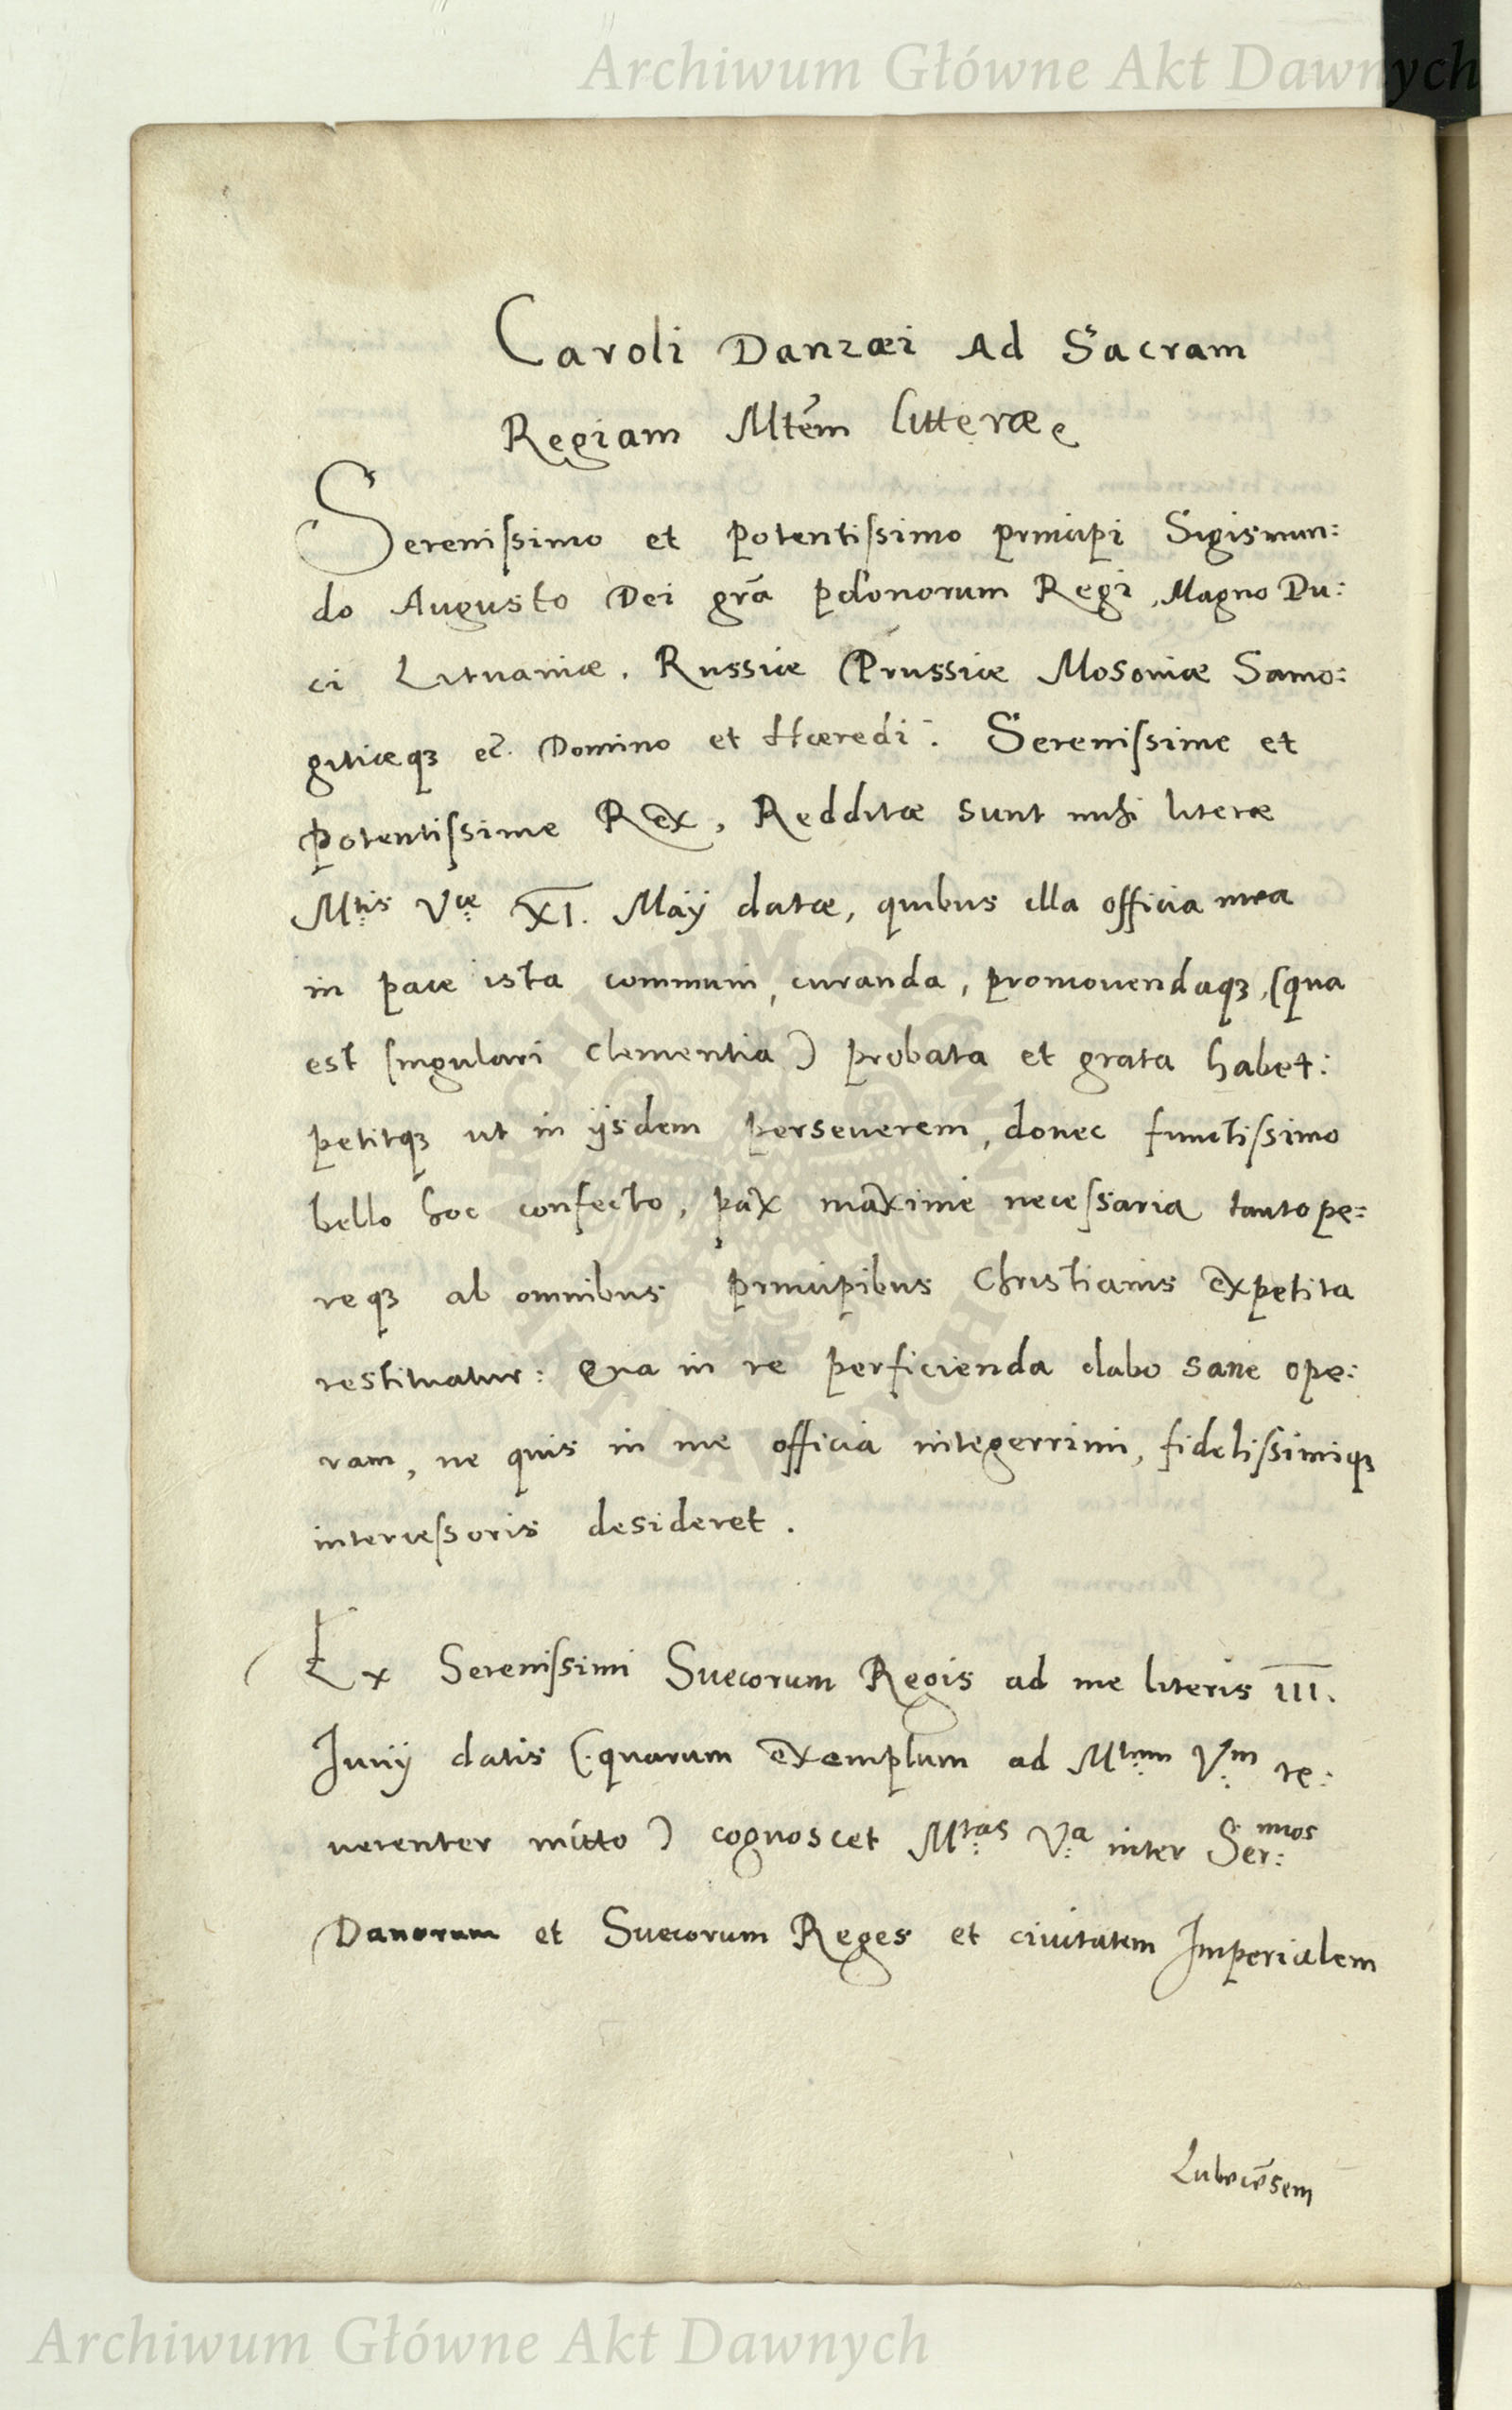 Archiwum Główne Akt Dawnych
Caroli Danzæi Ad Sacram
Regiam Mtẽm litteræ
Sereniſsimo et potentiſsimo principi Sigismun:
do Augusto Dei grã polonorum Regi, Magno Du:
ci Lituaniæ, Russiæ Prussiæ Mosoniæ Samo:
gitiæqꝫ ec̃. Domino et Hæredi. Sereniſsime et
potentiſsime Rex, Redditæ sunt mihi literæ
Mtis Væ XI. Maÿ datæ, quibus illa officia mea
in pace ista communi, curanda, promouendaqꝫ, (qua
est singulari clementia) probata et grata habet:
petitqꝫ ut in ijsdem perseuerem, donec funestiſsimo
bello hoc confecto, pax maxime neceſsaria tantope:
reqꝫ ab omnibus principibus Christianis expetita
restituatur: Qua in re perficienda dabo sane ope:
ram, ne quis in me officia integerrimi, fideliſsimiqꝫ
interceſsoris desideret.
Ex Sereniſsimi Suecorum Regis ad me literis III.
Junij datis (quarum exemplum ad Mtem Vm re:
uerenter mitto) cognoscet Mtas Va inter Ser:mos
Danorum et Suecorum Reges et ciuitatem Imperialem
Lubecẽsem
ARCHIWUM GŁÓWNE AKT DAWNYCH
Archiwum Główne Akt Dawnych